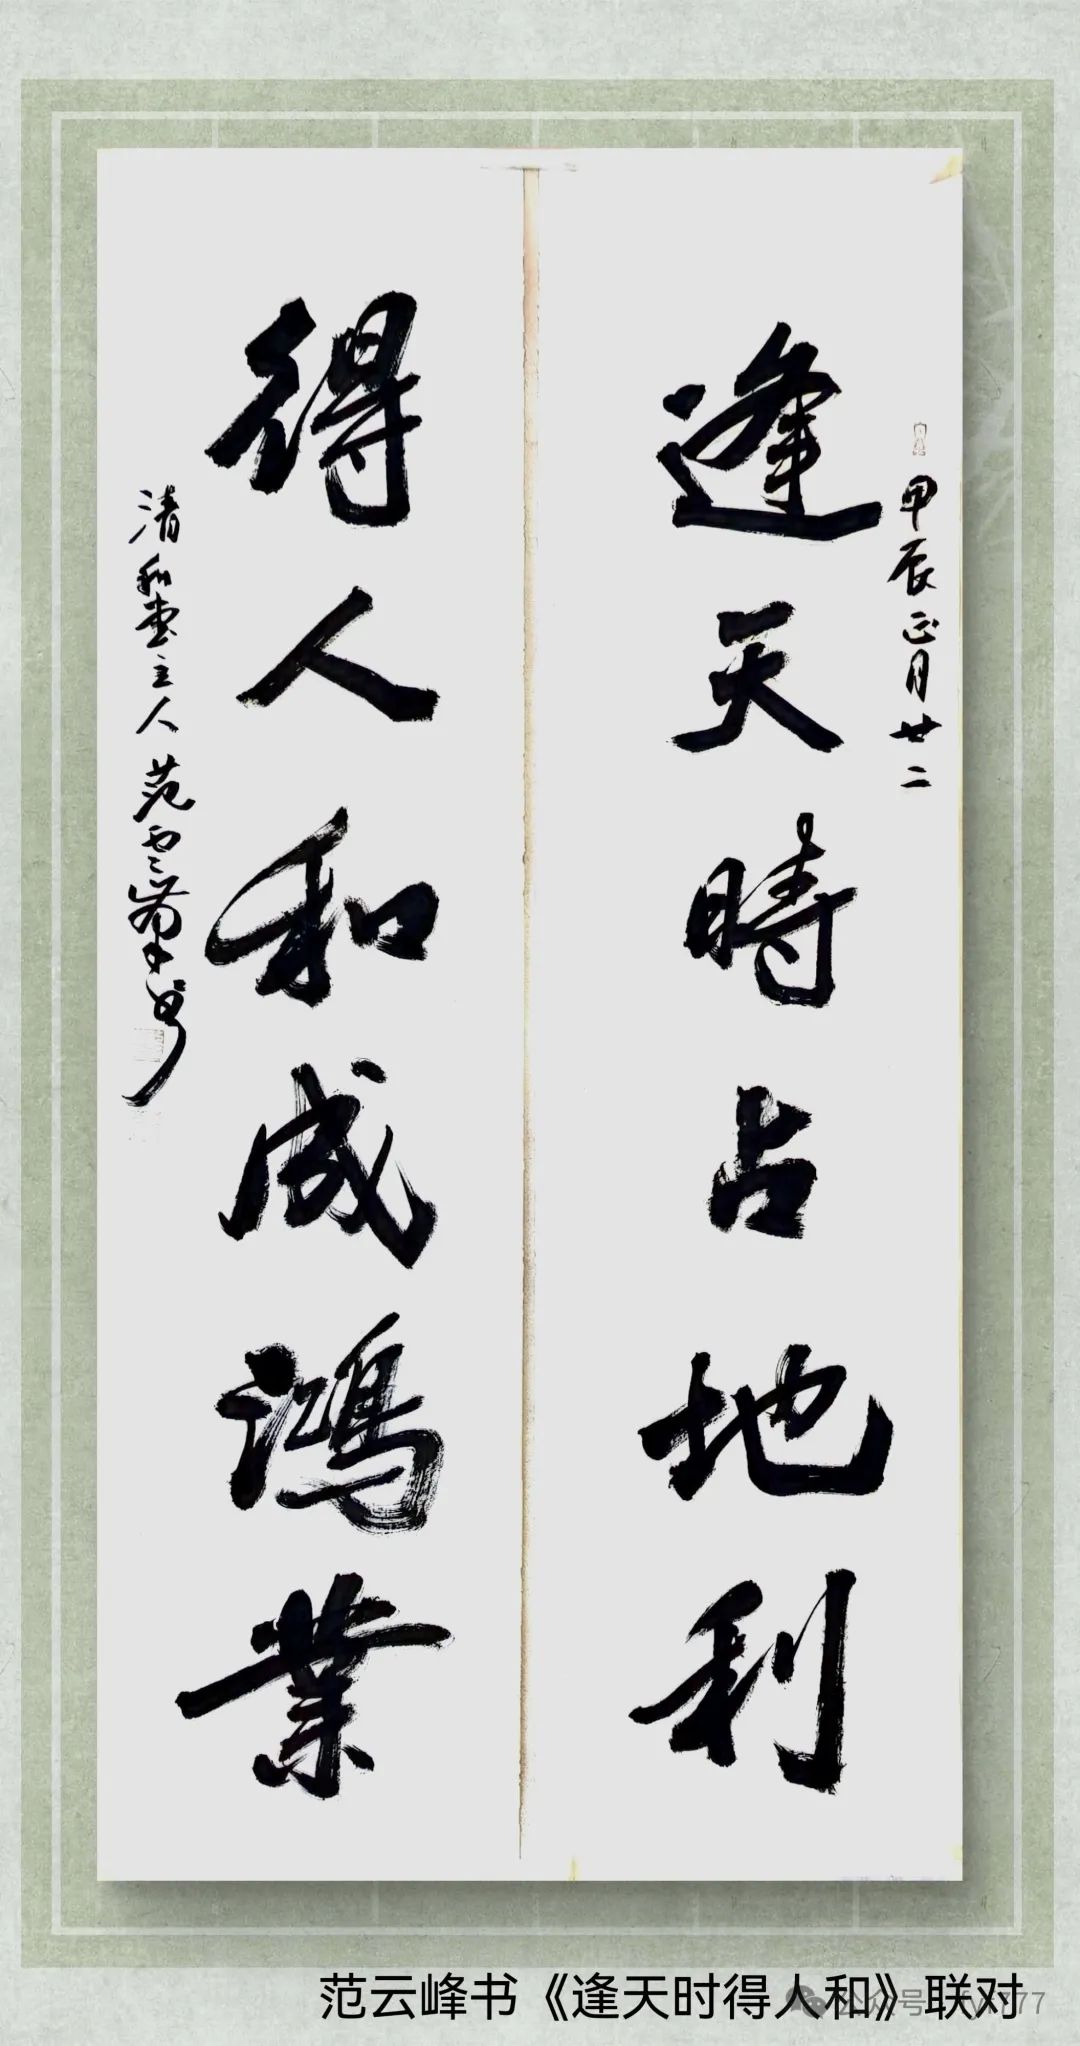 甲辰正月廿二
逢天時占地利
得人和成鴻業
清和堂主人范雲峯書
范云峰书《逢天时得人和》联对
公众号
777